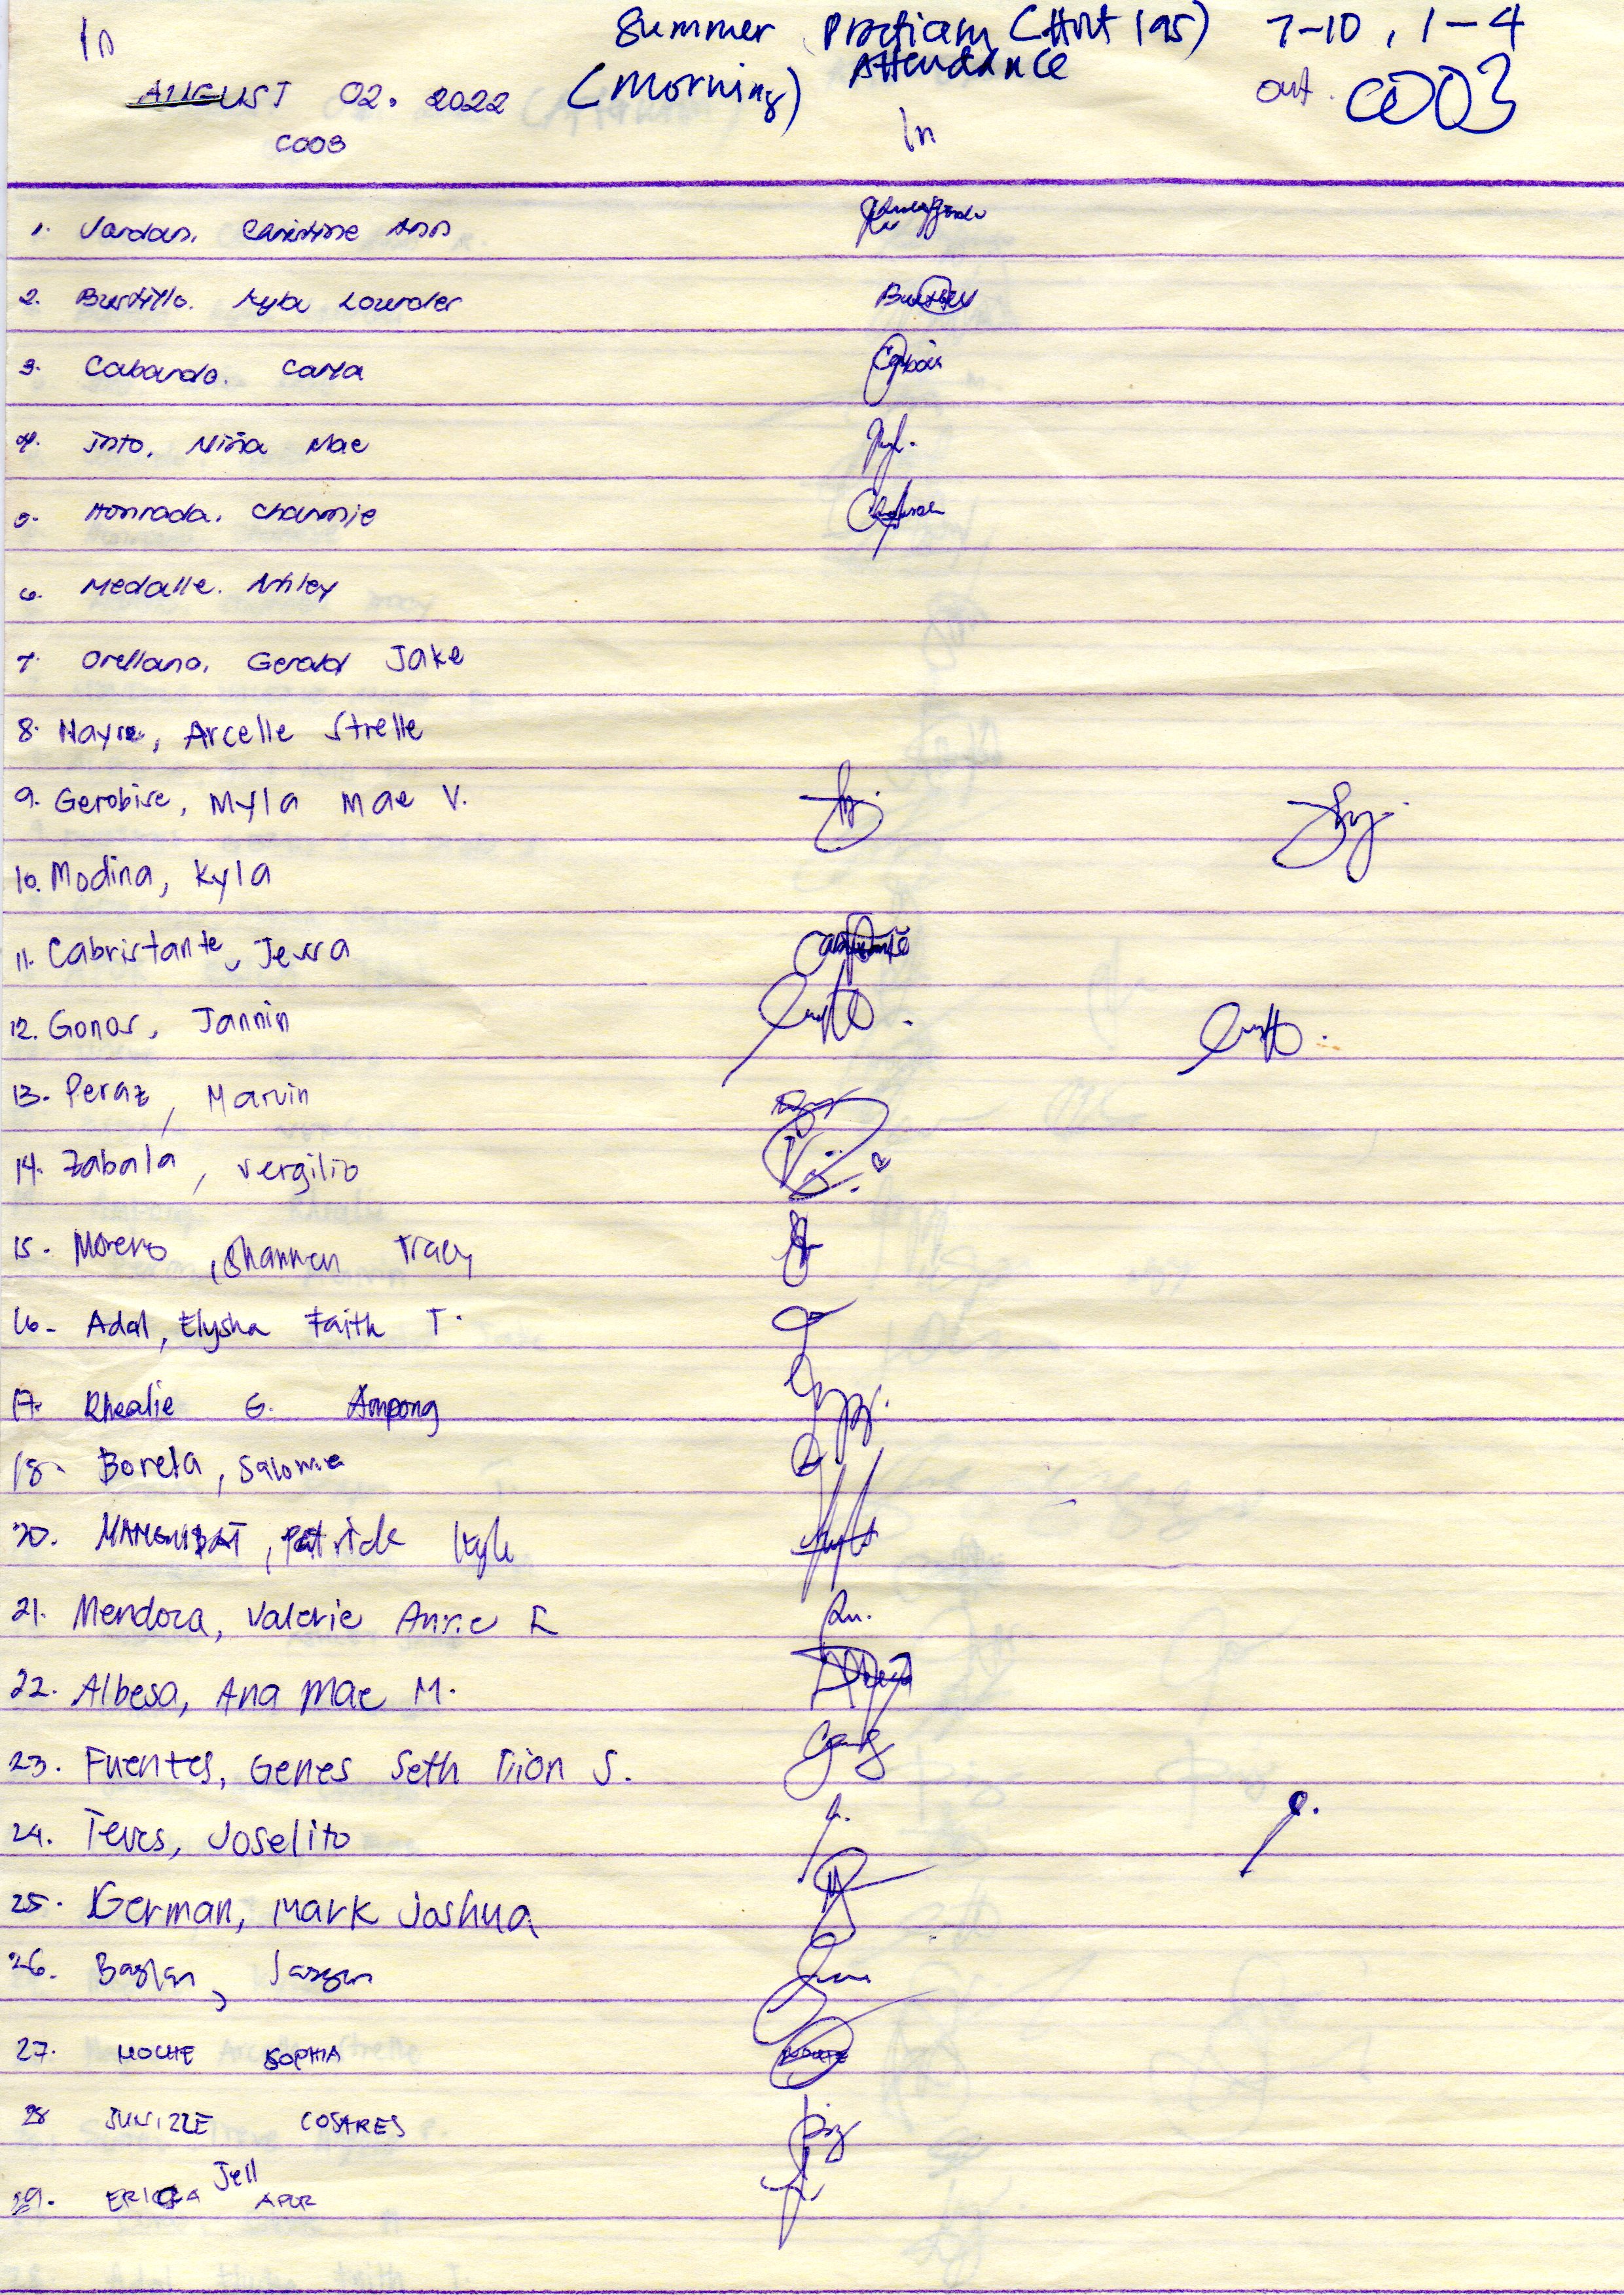 In Summer Practicum (HM 195) 7-10, 1-4
Attendance
AUGUST 02. 2022 (Morning) out. C003
C003 In
1. Jardan, Christine Ann
2. Bustillo. Kyla Lourder
3. Cabando. Carla
4. Into, Niña Mae
5. Honrada, Charmie
6. Medalle. Ashley
7. Orellano, Gerald Jake
8. Nayre, Arcelle Strelle
9. Gerobise, Myla Mae V.
10. Modina, Kyla
11. Cabristante, Jessa
12. Gonor, Jannin
13. Peraz, Marvin
14. Zabala, Vergilio
15. Moreno, Shannen Tracy
16. Adal, Elysha Faith T.
17. Rhealie G. Ampong
18. Boreta, Salome
20. MANGUIBAT, Patrick Kyle
21. Mendoza, Valerie Anne L
22. Albesa, Ana Mae M.
23. Fuentes, Genes Seth Dion S.
24. Teves, Joselito
25. German, Mark Joshua
26. Baglan,
27. NOCHE SOPHIA
28 JUNIZZE COSARES
29. ERICKA Jell APUR